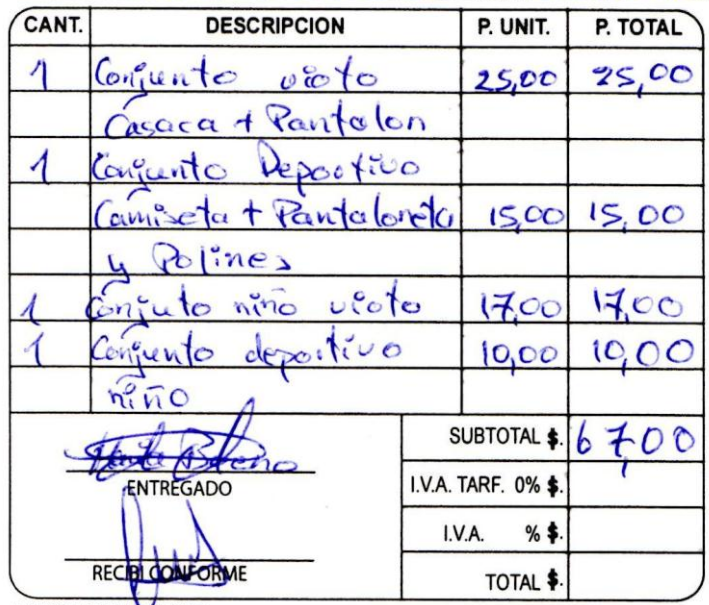 CANT. DESCRIPCION P. UNIT. P. TOTAL
1 Conjunto vioto 25,00 25,00
Casaca + Pantalon
1 Conjunto Deportivo
Camiseta + Pantaloneta 15,00 15,00
y Polines
1 Conjuto niño vioto 17,00 17,00
1 Conjunto deportivo 10,00 10,00
niño
SUBTOTAL $. 67,00
ENTREGADO
I.V.A. TARF. 0% $.
I.V.A. % $.
RECIBI CONFORME
TOTAL $.